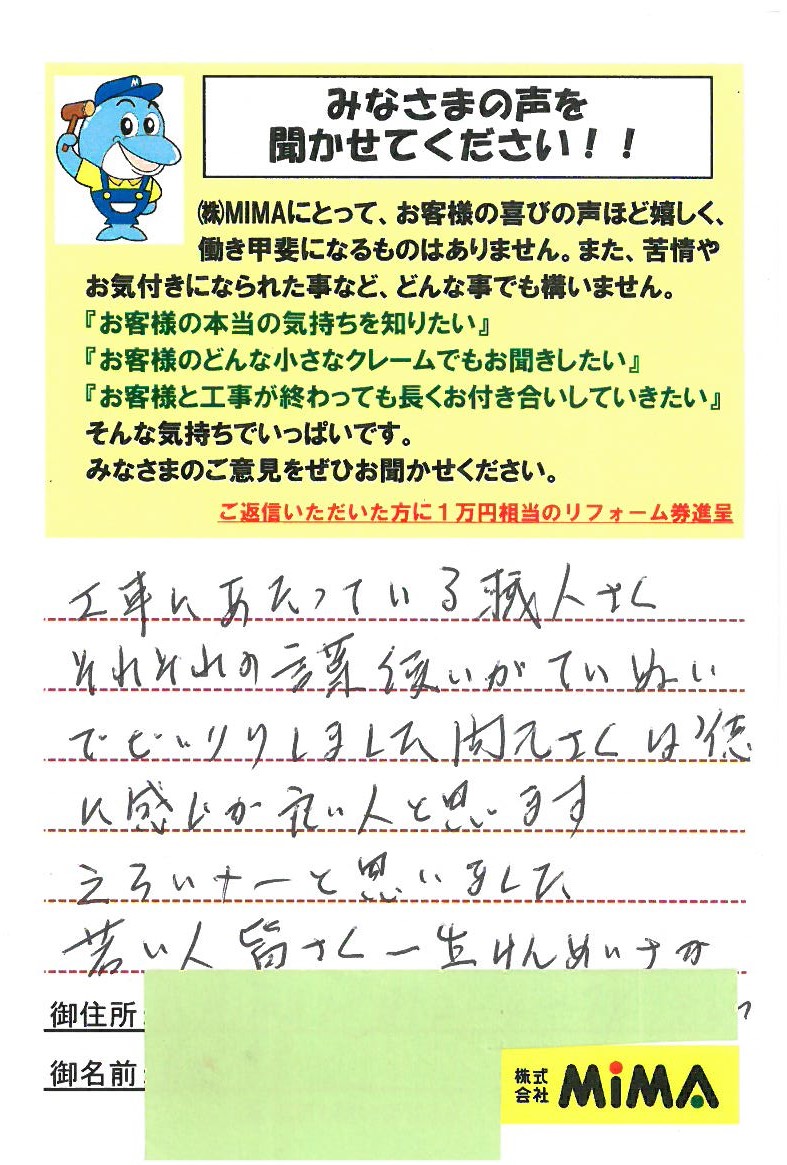 M
みなさまの声を
聞かせてください！！
㈱MIMAにとって、お客様の喜びの声ほど嬉しく、
働き甲斐になるものはありません。また、苦情や
お気付きになられた事など、どんな事でも構いません。
『お客様の本当の気持ちを知りたい』
『お客様のどんな小さなクレームでもお聞きしたい』
『お客様と工事が終わっても長くお付き合いしていきたい』
そんな気持ちでいっぱいです。
みなさまのご意見をぜひお聞かせください。
ご返信いただいた方に１万円相当のリフォーム券進呈
工事にあたっている職人さん
それぞれの言葉使いがていねい
でびっくりしました さんは
に感じが良い人と思います
えらいナーと思いました
若い人皆さん一生けんめいさが
御住所：
御名前：
株式会社 MiMA